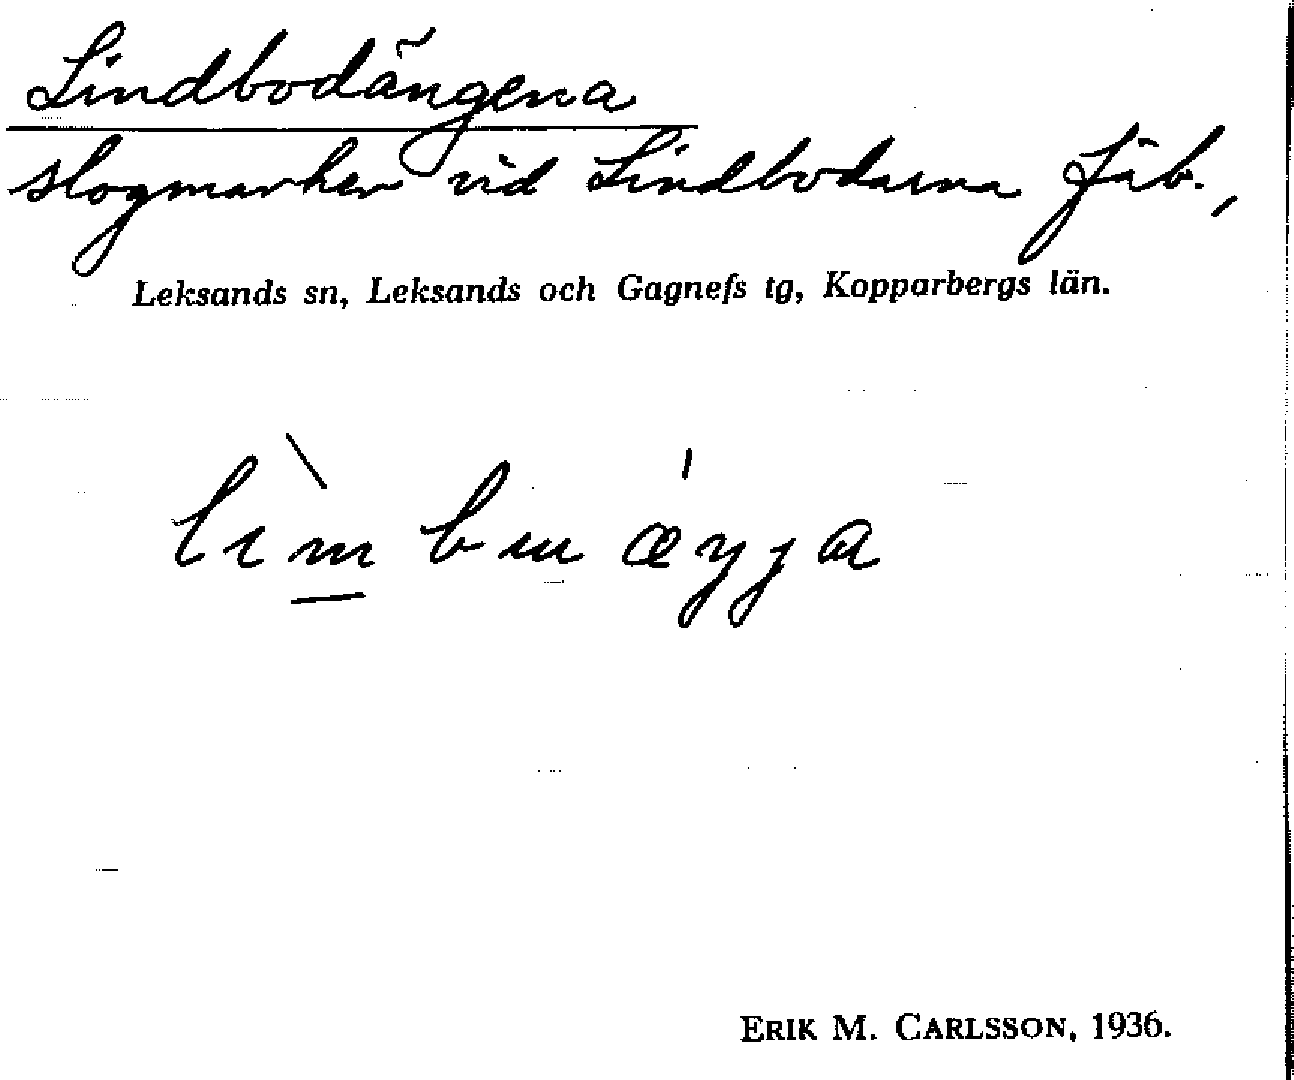 Lindbodängena
slogmarker vid Lindbodarna fäb.,
Leksands sn, Leksands och Gagnefs tg, Kopparbergs län.
ERIK M. CARLSSON, 1936.